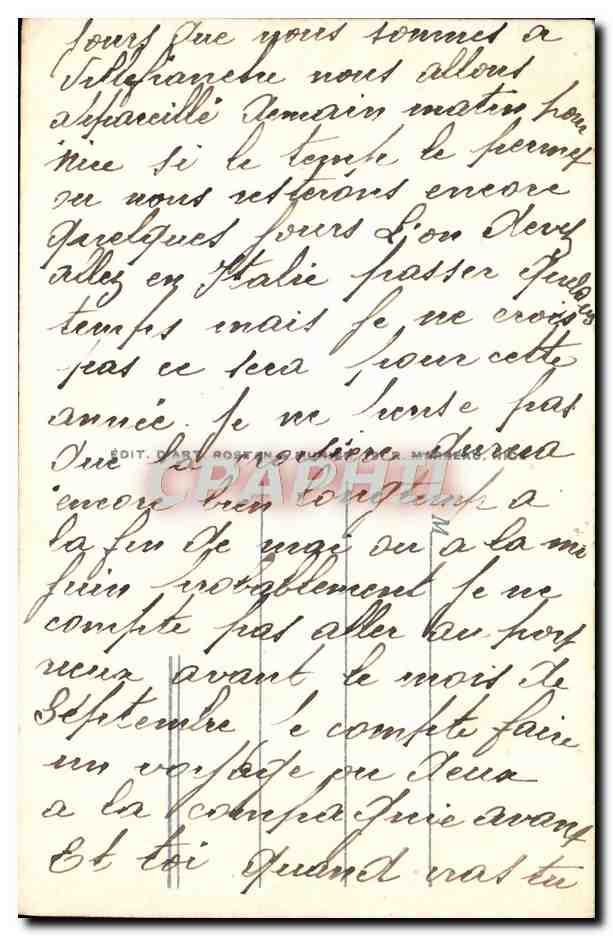 jours que nous sommes a
Villefranche nous allons
appareillé demain matin pour
Nice si le temp le permet
ou nous resterons encore
quelques jours L'on devez
allez en Italie passer quelques
temps mais je ne crois
pas ce sera pour cette
année. Je ne pense pas
que la croisière durera
ÉDIT. D'ART ROSTAN & MUNIER
CPARAMA
encore bien longtemp a
la fin de mai ou a la mi
juin probablement je ne
compte pas aller au
avant le mois de
Septembre je compte faire
un voyage ou deux
a la compagnie avant
Et toi quand vas tu